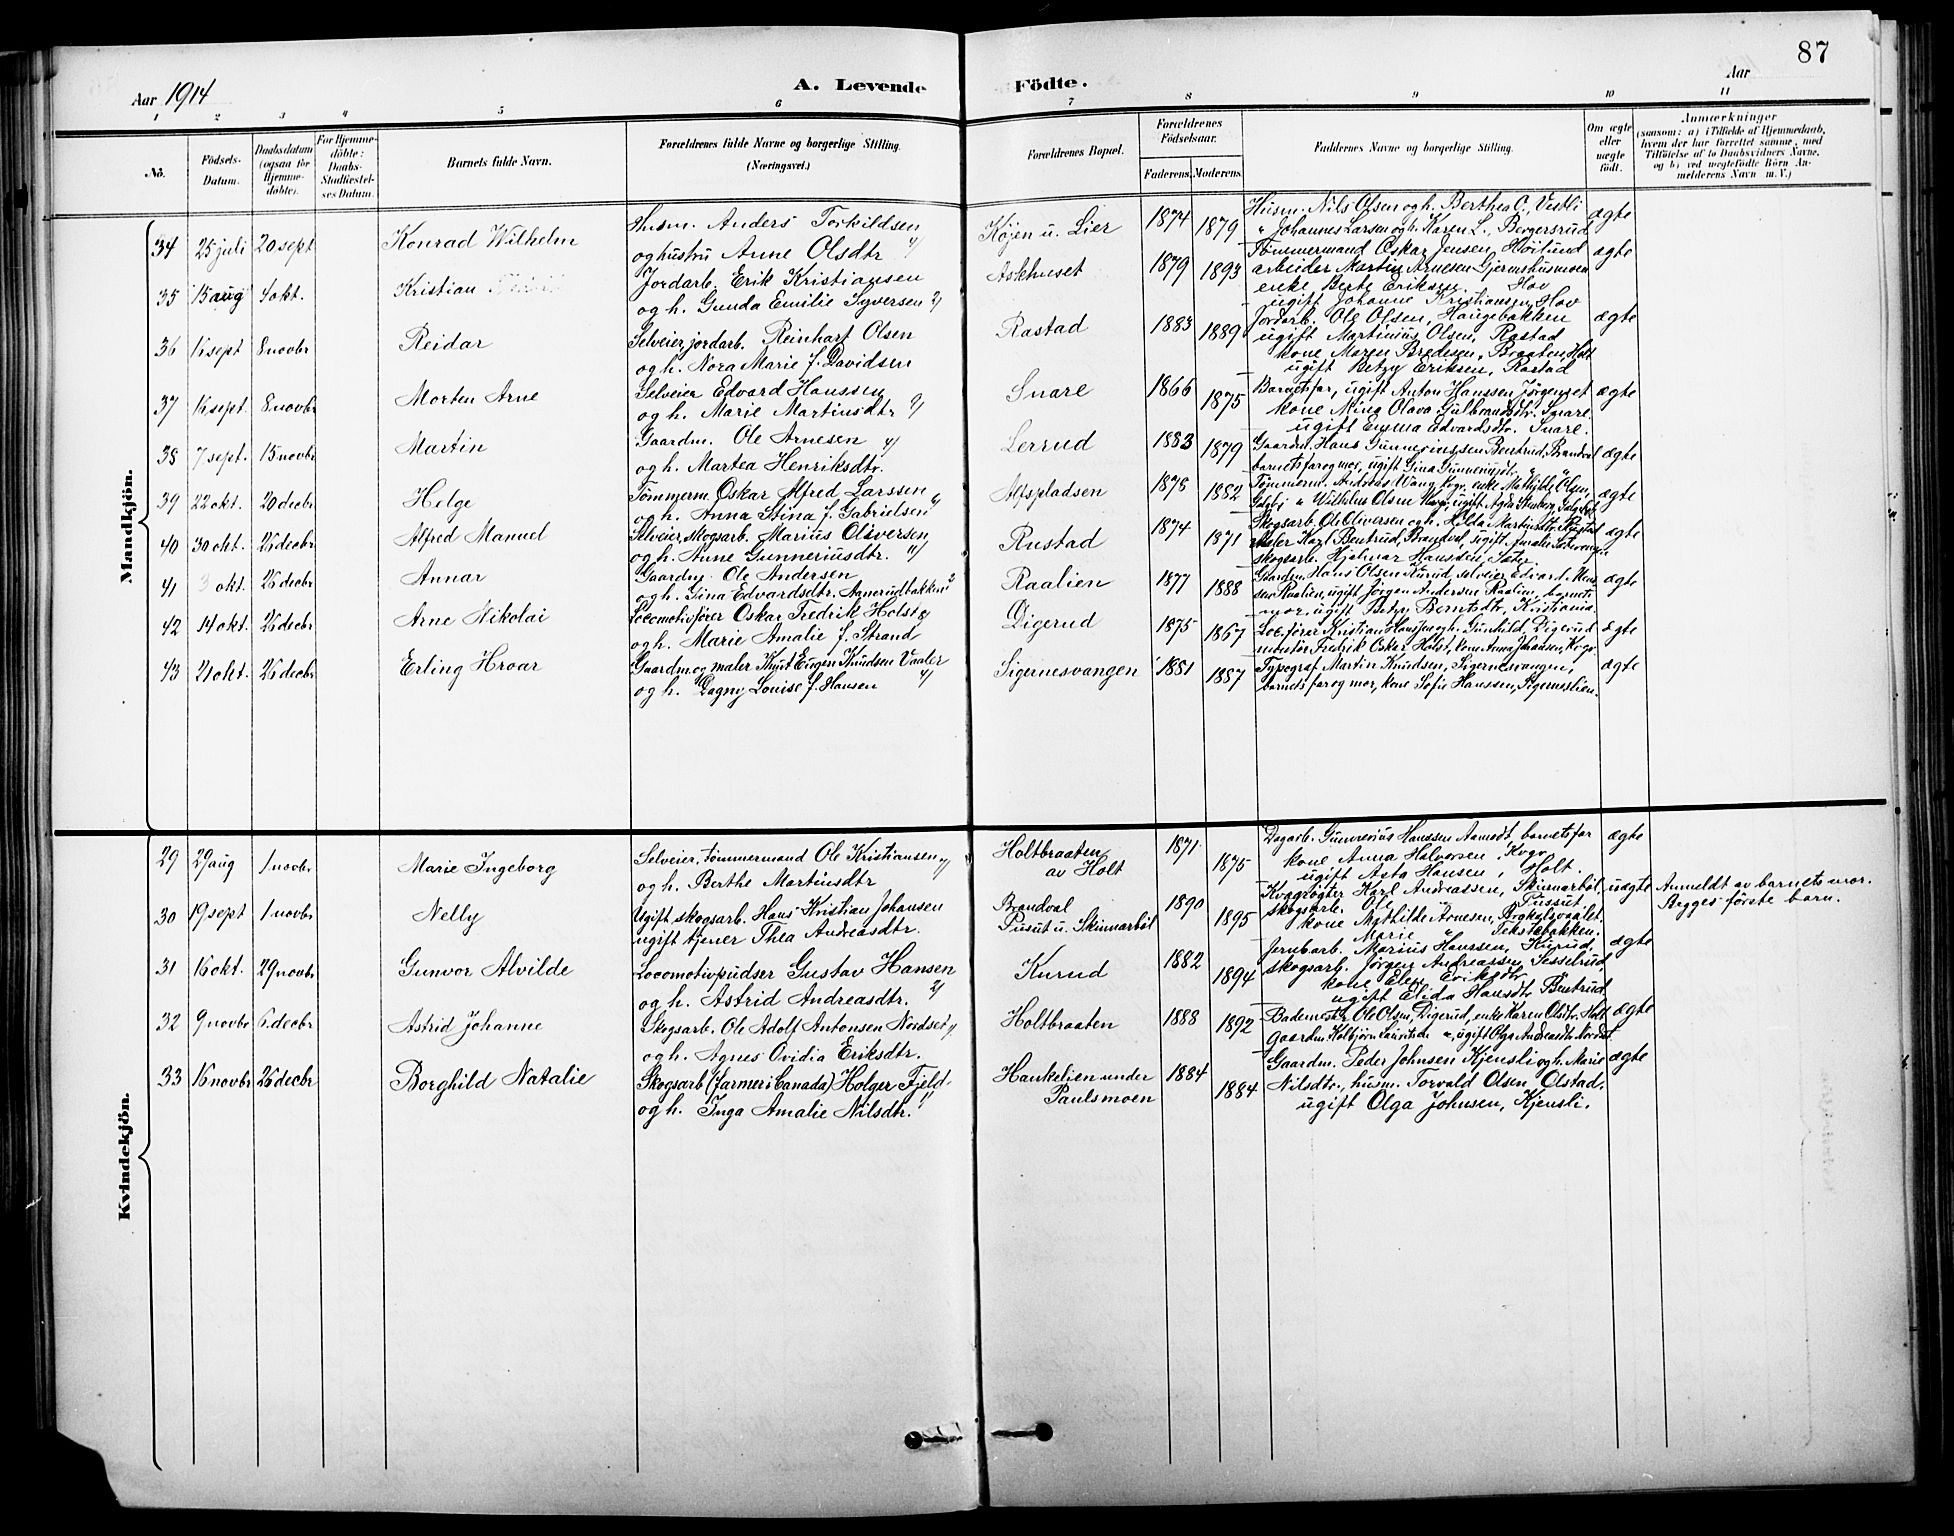 87
Aar 1914
A. Levende Födte.
Aar
1 2 3 4 5 6 7 8 9 10 11
No.
Födsels-Datum.
Daabsdatum (ogsaa för Hjemmedöbte).
For Hjemmedöbte: Daabs-Stadfæstelses Datum.
Barnets fulde Navn.
Forældrenes fulde Navne og borgerlige Stilling. (Næringsvei.)
Forældrenes Bopæl.
Forældrenes Födselsaar.
Faderens. Moderens.
Faddernes Navne og borgerlige Stilling.
Om ægte eller uægte födt.
Anmærkninger
(saasom: a) i Tilfælde af Hjemmedaab, hvem der har forrettet samme, med Tilföielse af to Daabsvidners Navne, og b) ved uægtefödte Börn Anmelderens Navn m. V.)
Mandkjön.
34 25 juli 20 sept Konrad Wilhelm
Husm. Anders Torkildsen
og hustru Anne Olsdtr
Köjen u. Lier 1874 1879
Husm. Nils Olsen og h. Berthea O., Vestli
" Johannes Larsen og h. Karen L., Bergersrud
ægte
35 15 aug 4 okt. Kristian
Jordarb. Erik Kristiansen
og h. Gunda Emilie Syversen
Askhuset 1879 1893
Tömmermand Oskar Jensen, Höilund
arbeider Martin Arnesen Gjermshusmoen
enke Berte Eriksen. Hov
ugift Johanne Kristiansen, Hov
ægte
36 16 sept 8 novbr Reidar
Selveier, jordarb. Reinhart Olsen
og h. Nora Marie f. Davidsen
Rastad 1883 1889
Jordarb. Ole Olsen, Haugebakken
ugift Martinius Olsen, Rastad
kone Maren Bredesen, Braaten, Holt
ugift Betzy Eriksen, Rastad
ægte
37 16 sept. 8 novbr Morten Arne
Selveier Edvard Hanssen
og h. Marie Martinsdtr
Snare 1866 1875
Barnets far, ugift Anton Hanssen Jörgenset
kone Mina Olava Gulbrandsdtr. Snare
ugift Emma Edvardsdtr. Snare.
ægte
38 7 sept. 15 novbr Martin
Gaardm. Ole Arnesen
og h. Martea Henriksdtr.
Lerrud 1883 1879
Gaardm. Hans Gunneriussen Bentrud, Brandval
barnets far og mor, ugift Gina Gunneriusdtr.
ægte
39 22 okt. 20 decbr Helge
Tömmerm. Oskar Alfred Larssen
og h. Anna Stina f. Gabrielsen
Alfspladsen 1878 1882
Tömmerm. Andreas Wang Kvgr, enke Mathilde Olsen,
" Wilhelm Olsen Kvgr, ugift
ægte
40 30 okt. 26 decbr Alfred Manuel
Selveier, skogsarb. Marius Oliversen
og h. Anne Gunneriusdtr.
Rustad 1874 1871
Skogsarb. Ole Oliversen og h. Hilda Martinsdtr, Rustad
Karl Bentrud, Brandval, ugift Amalie
skogsarb. Hjalmar Hansen, Sæter
ægte
41 3 okt. 26 decbr Annar
Gaardm. Ole Andersen
og h. Gina Edvardsdtr. Aanerudbakken
Raalien 1877 1888
Gaardm. Hans Olsen Kurud, selveier Edvard
Raalien, ugift Jörgen Andersen Raalien, barnets
mor, ugift Betzy Berntsdtr, Kristiania.
ægte
42 14 okt. 26 decbr Arne Nikolai
Locomotivförer Oskar Fredrik Holst
og h. Marie Amalie f. Strand
Digerud 1875 1867
Loc.förer Kristian Hanssen og h. Gunhild, Digerud
montör Fredrik Oskar Holst, kone Anna Johansen, Kvgr.
ægte
43 21 okt. 26 decbr Erling Hroar
Gaardm. og maler Knut Eugen Knudsen Vaaler
og h. Dagny Louise f. Hansen
Sigernesvangen 1881 1887
Typograf Martin Knudsen, Sigernesvangen,
barnets far og mor, kone Sofie Hanssen, Sigerneslien.
ægte
Kvindekjön.
29 29 aug 1 novbr Marie Ingeborg
Selveier, tömmermand Ole Kristiansen
og h. Berthe Martinsdtr
Holtbraaten av Holt 1871 1875
Dagarb. Gunnerius Hanssen Aamodt, barnets far
kone Anna Halvorsen, Kvgr.
ugift Asta Hansen, Holt.
ægte
30 19 sept 1 novbr Nelly
Ugift skogsarb. Hans Kristian Johansen
ugift tjener Thea Andreasdtr.
Brandval
Pusut u. Skinnarböl 1890 1895
Kvægrögter Karl Andreassen, Skinnarböl,
skogsarb. Ole " Pussut,
kone Mathilde Arnesen,
Marie "
uægte
Anmeldt av barnets mor.
Begges förste barn.
31 16 okt. 29 novbr Gunvor Alvilde
Locomotivpudser Gustav Hansen
og h. Astrid Andreasdtr.
Kurud 1882 1894
Jernbarb. Marius Hanssen, Kurud,
skogsarb. Jörgen Andreassen, Sesselrud,
kone Elen Eriksdtr
ugift Elida Hansdtr Bentrud
ægte
32 9 novbr 6 decbr Astrid Johanne
Skogsarb. Ole Adolf Antonsen Nordset
og h. Agnes Ovidia Eriksdtr.
Holtbraaten 1888 1892
Bademester Ole Olsen, Digerud, enke Karen Olsdtr. Holt
gaardm. Kolbjörn Lauritsen ", ugift Olga Andreasdtr Nordset
ægte
33 16 novbr 26 decbr Borghild Natalie
Skogsarb (farmer i Canada) Holger Fjeld
og h. Inga Amalie Nilsdtr.
Haukelien under Paulsmoen 1884 1884
Gaardm. Peder Johnsen Kjensli og h. Marie
Nilsdtr., husm. Torvald Olsen Olstad,
ugift Olga Johnsen, Kjensli.
ægte